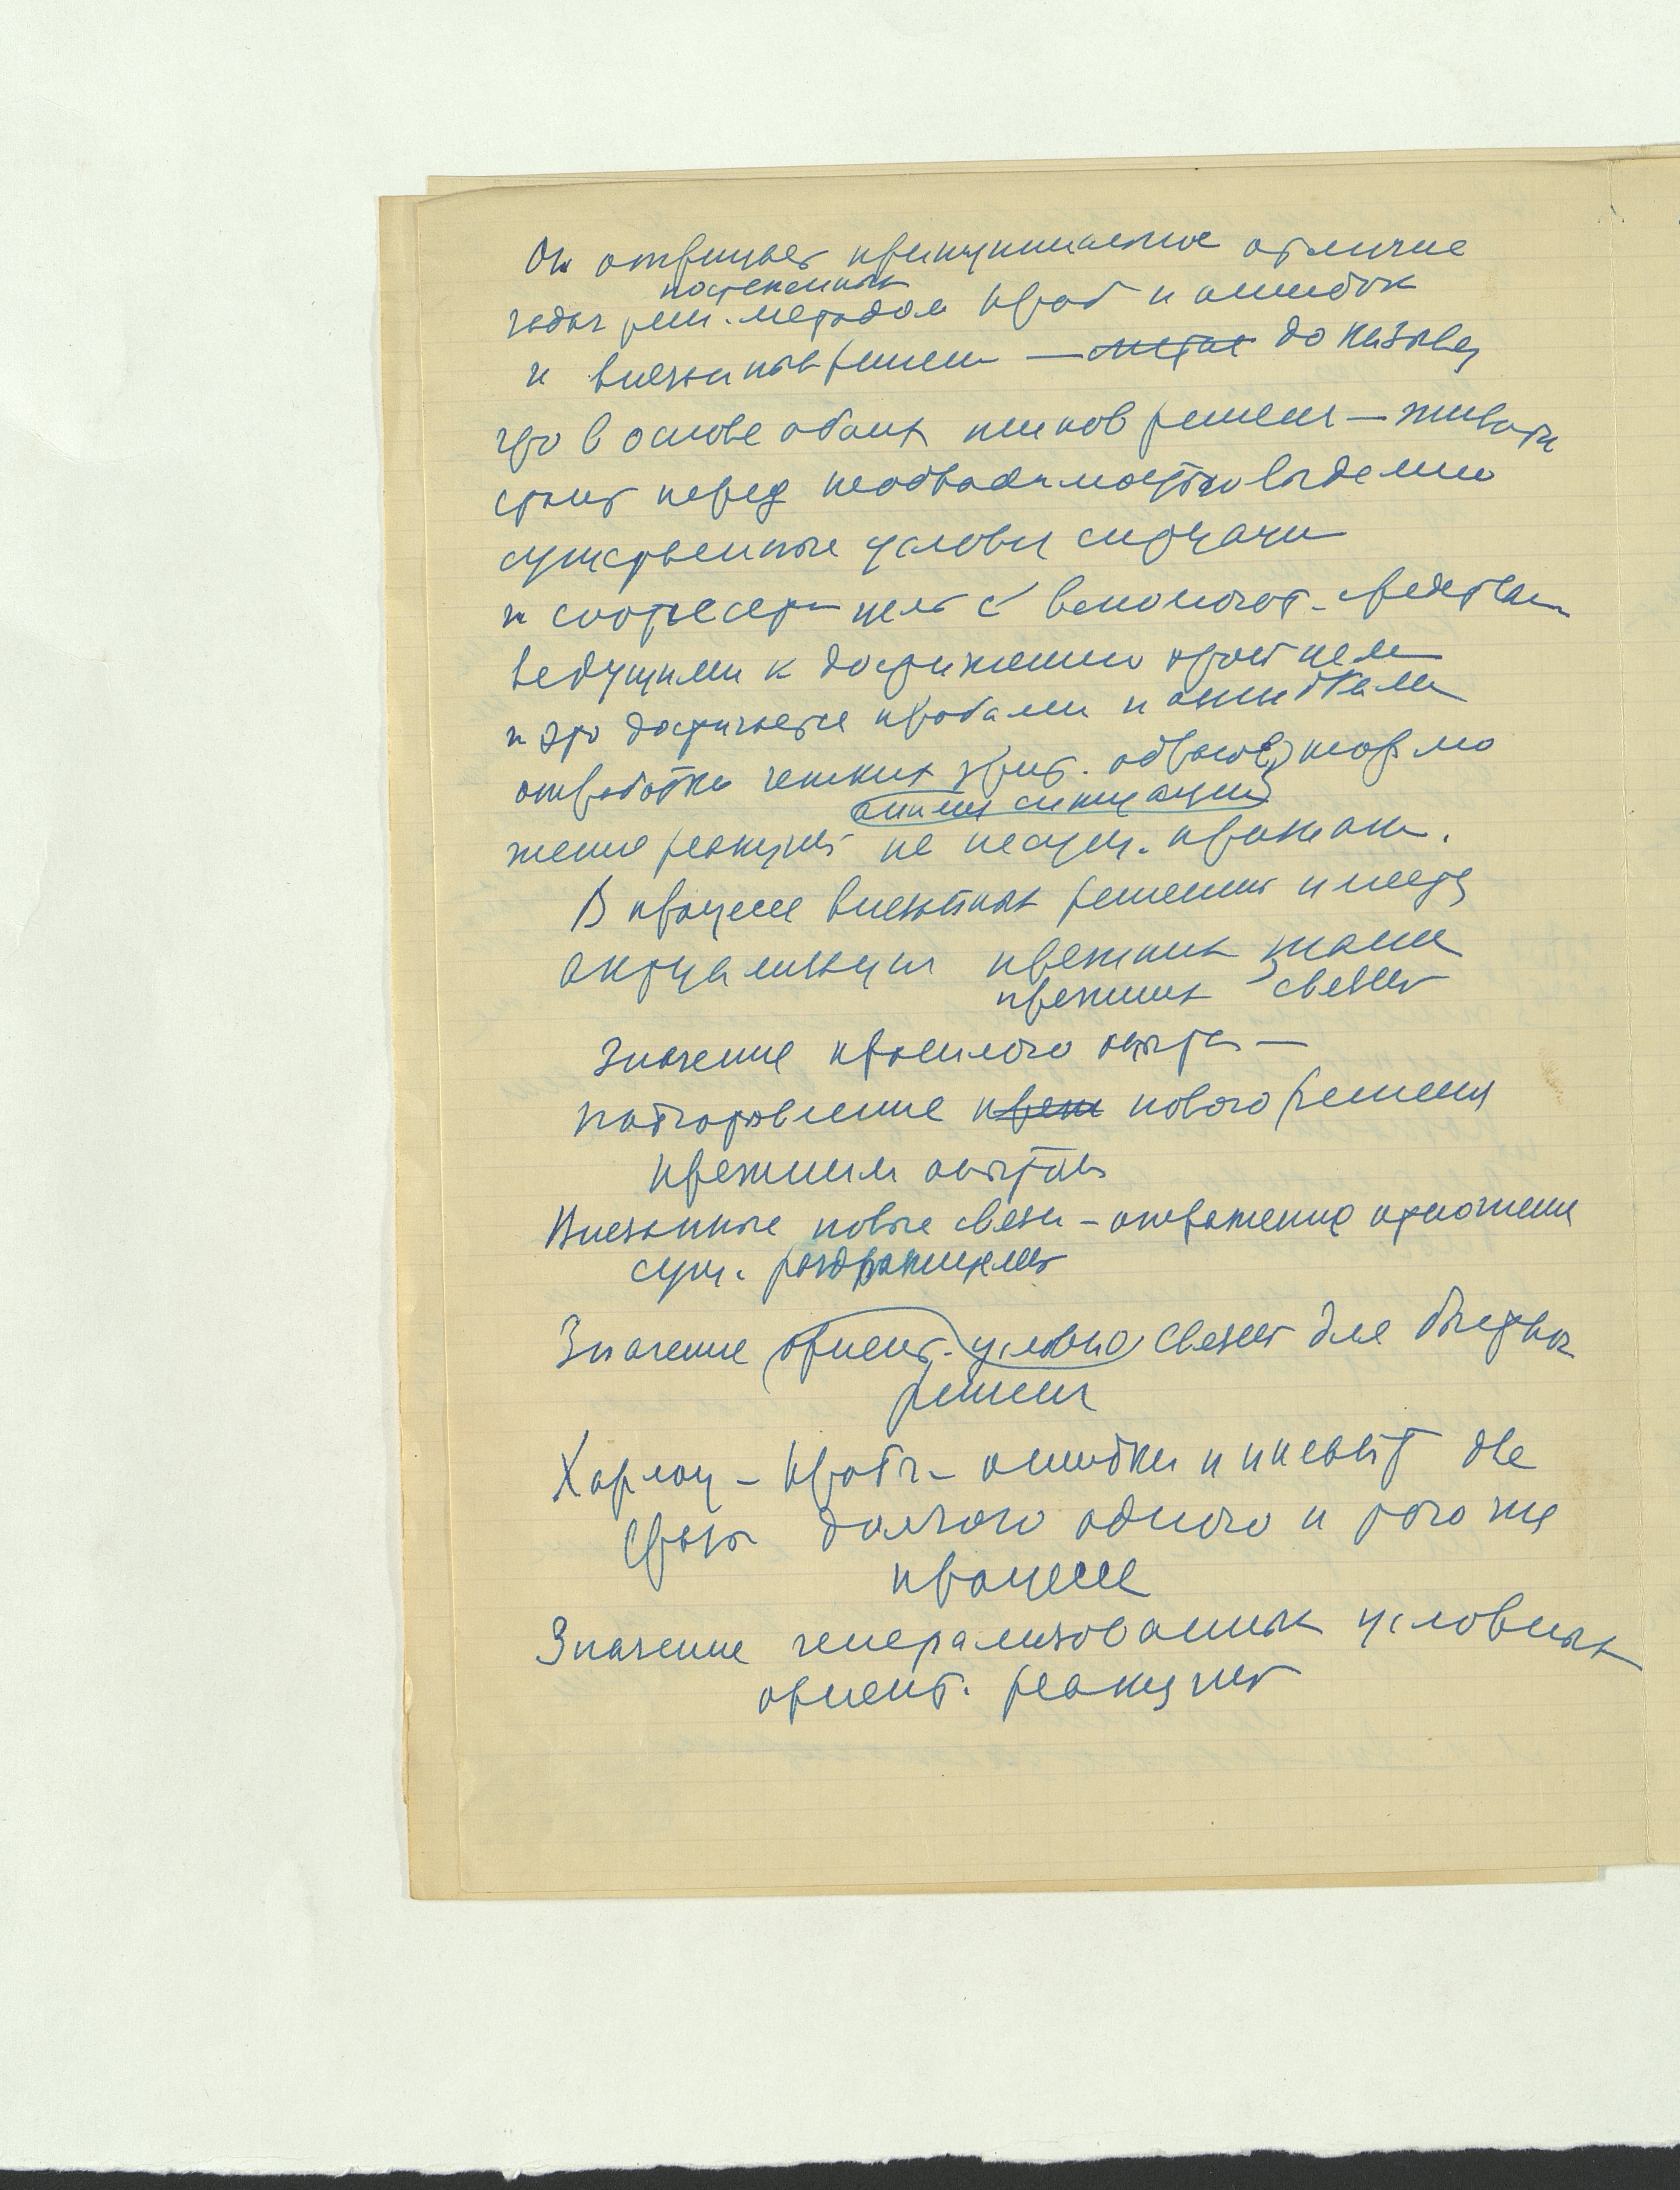 Он отрицает принципиальное отличие
постепенных
задач реш. методом проб и ошибок
и внезапных решений — до казывает
что в основе обоих типов решения — животн
стоит перед необходимостью выделить
существенные условия ситуации
и соотнести цель с вспомогат. средствами
ведущими к достижению этой цели
и это достигается пробами и ошибками
отработки четких ориент. образов, тормо
анализ ситуации
жение реакций не несущ. признак.
В процессе внезапных решений имеет
актуализация прежних
прежних связей
Значение прошлого опыта —
подготовление нового решения
прежним опытом
Внезапные новые связи – отражение отношения
сущ. раздражителей
Значение ориент. условно связей для быстрых
решений
Харлоу – пробы – ошибки и инсайт две
фазы долгого одного и того же
процесса
Значение генерализованных условных
ориент. реакций